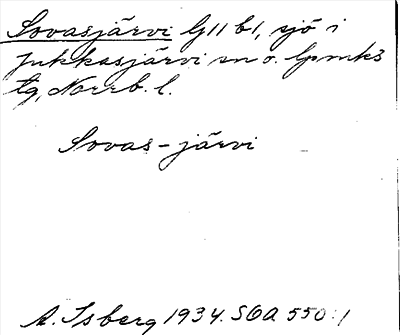 Sovasjärvi G11 b1, sjö i
Jukkasjärvi sn o. lpmks
tg, Norrb. l.
Sovas-järvi
A. Isberg 1934. SOA 550:1